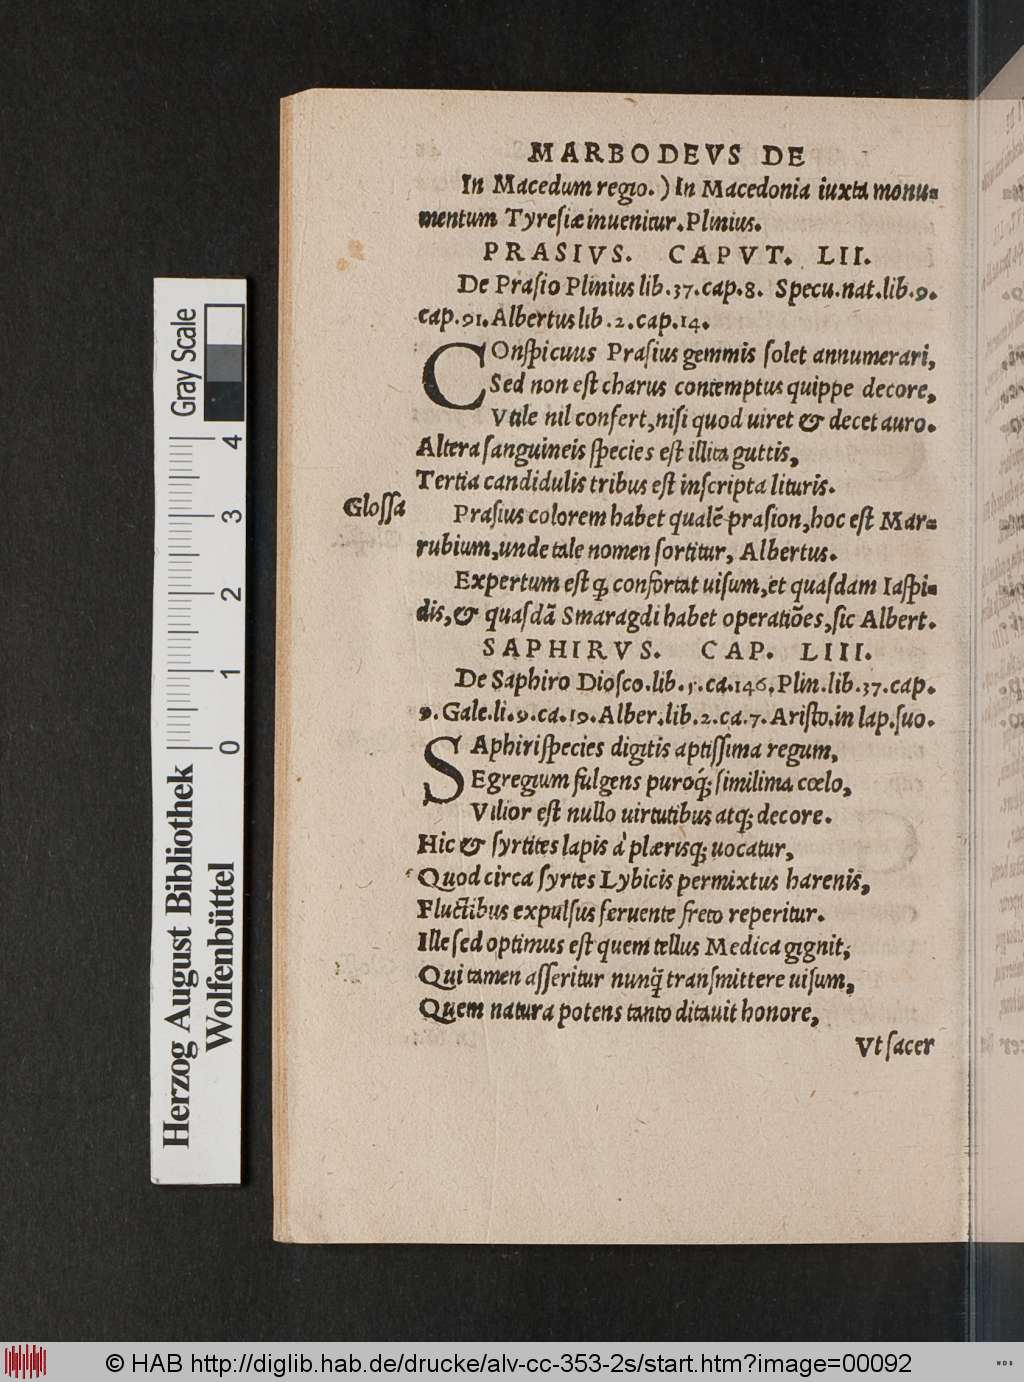 MARBODEVS DE
In Macedum regio.) In Macedonia iuxta monu-
mentum Tyresiæ inuenitur. Plinius.
PRASIVS. CAPVT. LII.
De Prasio Plinius lib. 37. cap. 8. Specu. nat. lib. 9.
cap. 91. Albertus lib. 2. cap. 14.
COnſpicuus Praſius gemmis ſolet annumerari,
Sed non eſt charus contemptus quippe decore,
Vtile nil confert, niſi quod uiret & decet auro.
Altera ſanguineis ſpecies eſt illita guttis,
Tertia candidulis tribus eſt inſcripta lituris.
Gloſſa
Praſius colorem habet qualẽ praſion, hoc eſt Mar-
rubium, unde tale nomen ſortitur, Albertus.
Expertum eſt q; confortat uiſum, et quaſdam Iaſpi-
dis, & quaſdã Smaragdi habet operatiões, ſic Albert.
SAPHIRVS. CAP. LIII.
De Saphiro Dioſco. lib. 5. ca. 146. Plin. lib. 37. cap.
9. Gale. li. 9. ca. 19. Alber. lib. 2. ca. 7. Ariſto. in lap. ſuo.
SAphiri ſpecies digitis aptiſſima regum,
Egregium fulgens puroq́; ſimilima cœlo,
Vilior eſt nullo uirtutibus atq; decore.
Hic & ſyrtites lapis à plæriſq; uocatur,
Quod circa ſyrtes Lybicis permixtus harenis,
Fluctibus expulſus feruente freto reperitur.
Ille ſed optimus eſt quem tellus Medica gignit,
Qui tamen aſſeritur nunq̃ tranſmittere uiſum,
Quem natura potens tanto ditauit honore,
Vt ſacer
Gray Scale
4
3
2
1
0
Herzog August Bibliothek
Wolfenbüttel
© HAB http://diglib.hab.de/drucke/alv-cc-353-2s/start.htm?image=00092